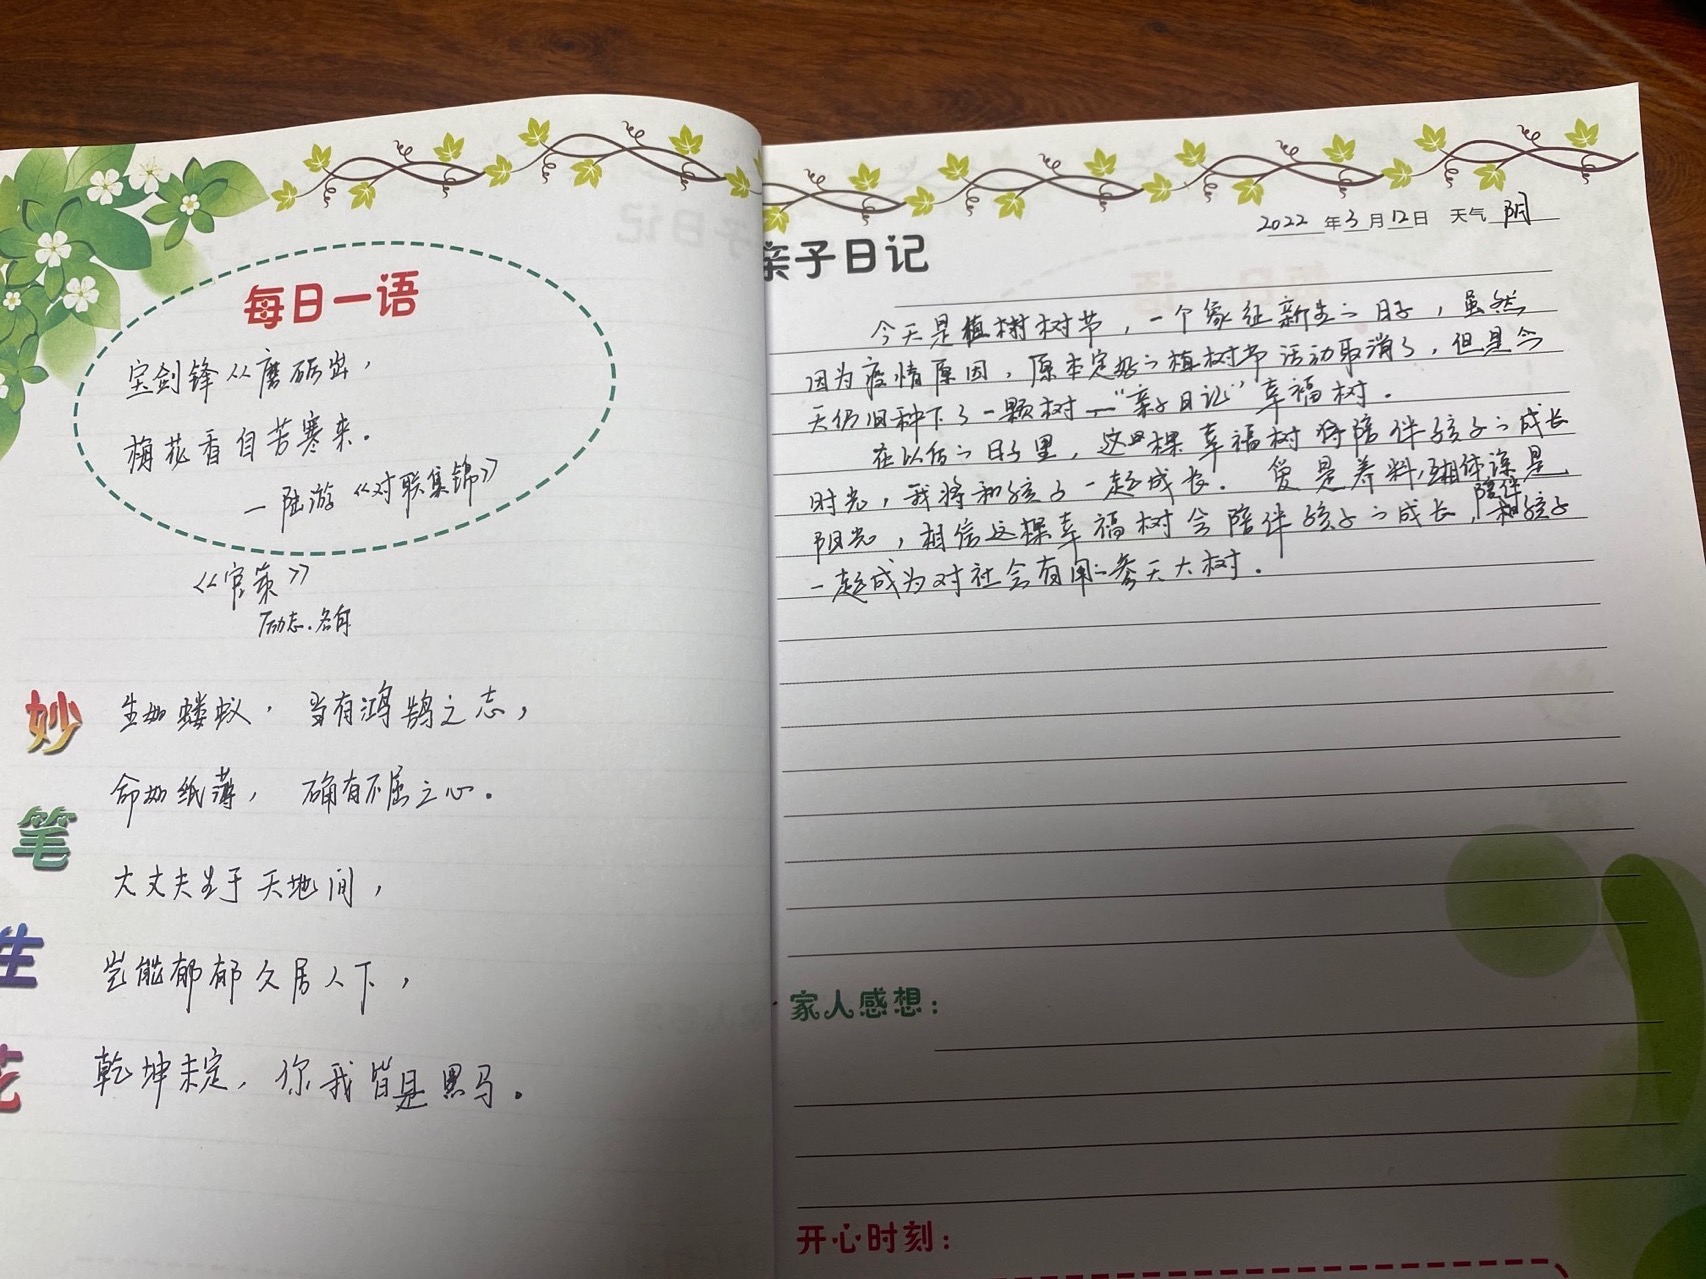 每日一语
宝剑锋从磨砺出，
梅花香自苦寒来。
—陆游《对联集锦》
《官策》
励志.名句
妙笔生花
生如蝼蚁，当有鸿鹄之志，
命如纸薄，确有不屈之心。
大丈夫生于天地间，
岂能郁郁久居人下，
乾坤未定，你我皆是黑马。
2022年3月12日 天气 阴
亲子日记
今天是植树树节，一个象征新生的日子，虽然
因为疫情原因，原本定好的植树节活动取消了，但是今
天仍旧种下了一颗树—"亲子日记"幸福树。
在以后的日子里，这棵幸福树将陪伴孩子的成长
时光，我将和孩子一起成长。爱是养料，相体谅是
阳光，相信这棵幸福树会陪伴孩子的成长，陪伴孩子
一起成为对社会有用的参天大树。
家人感想：
开心时刻：